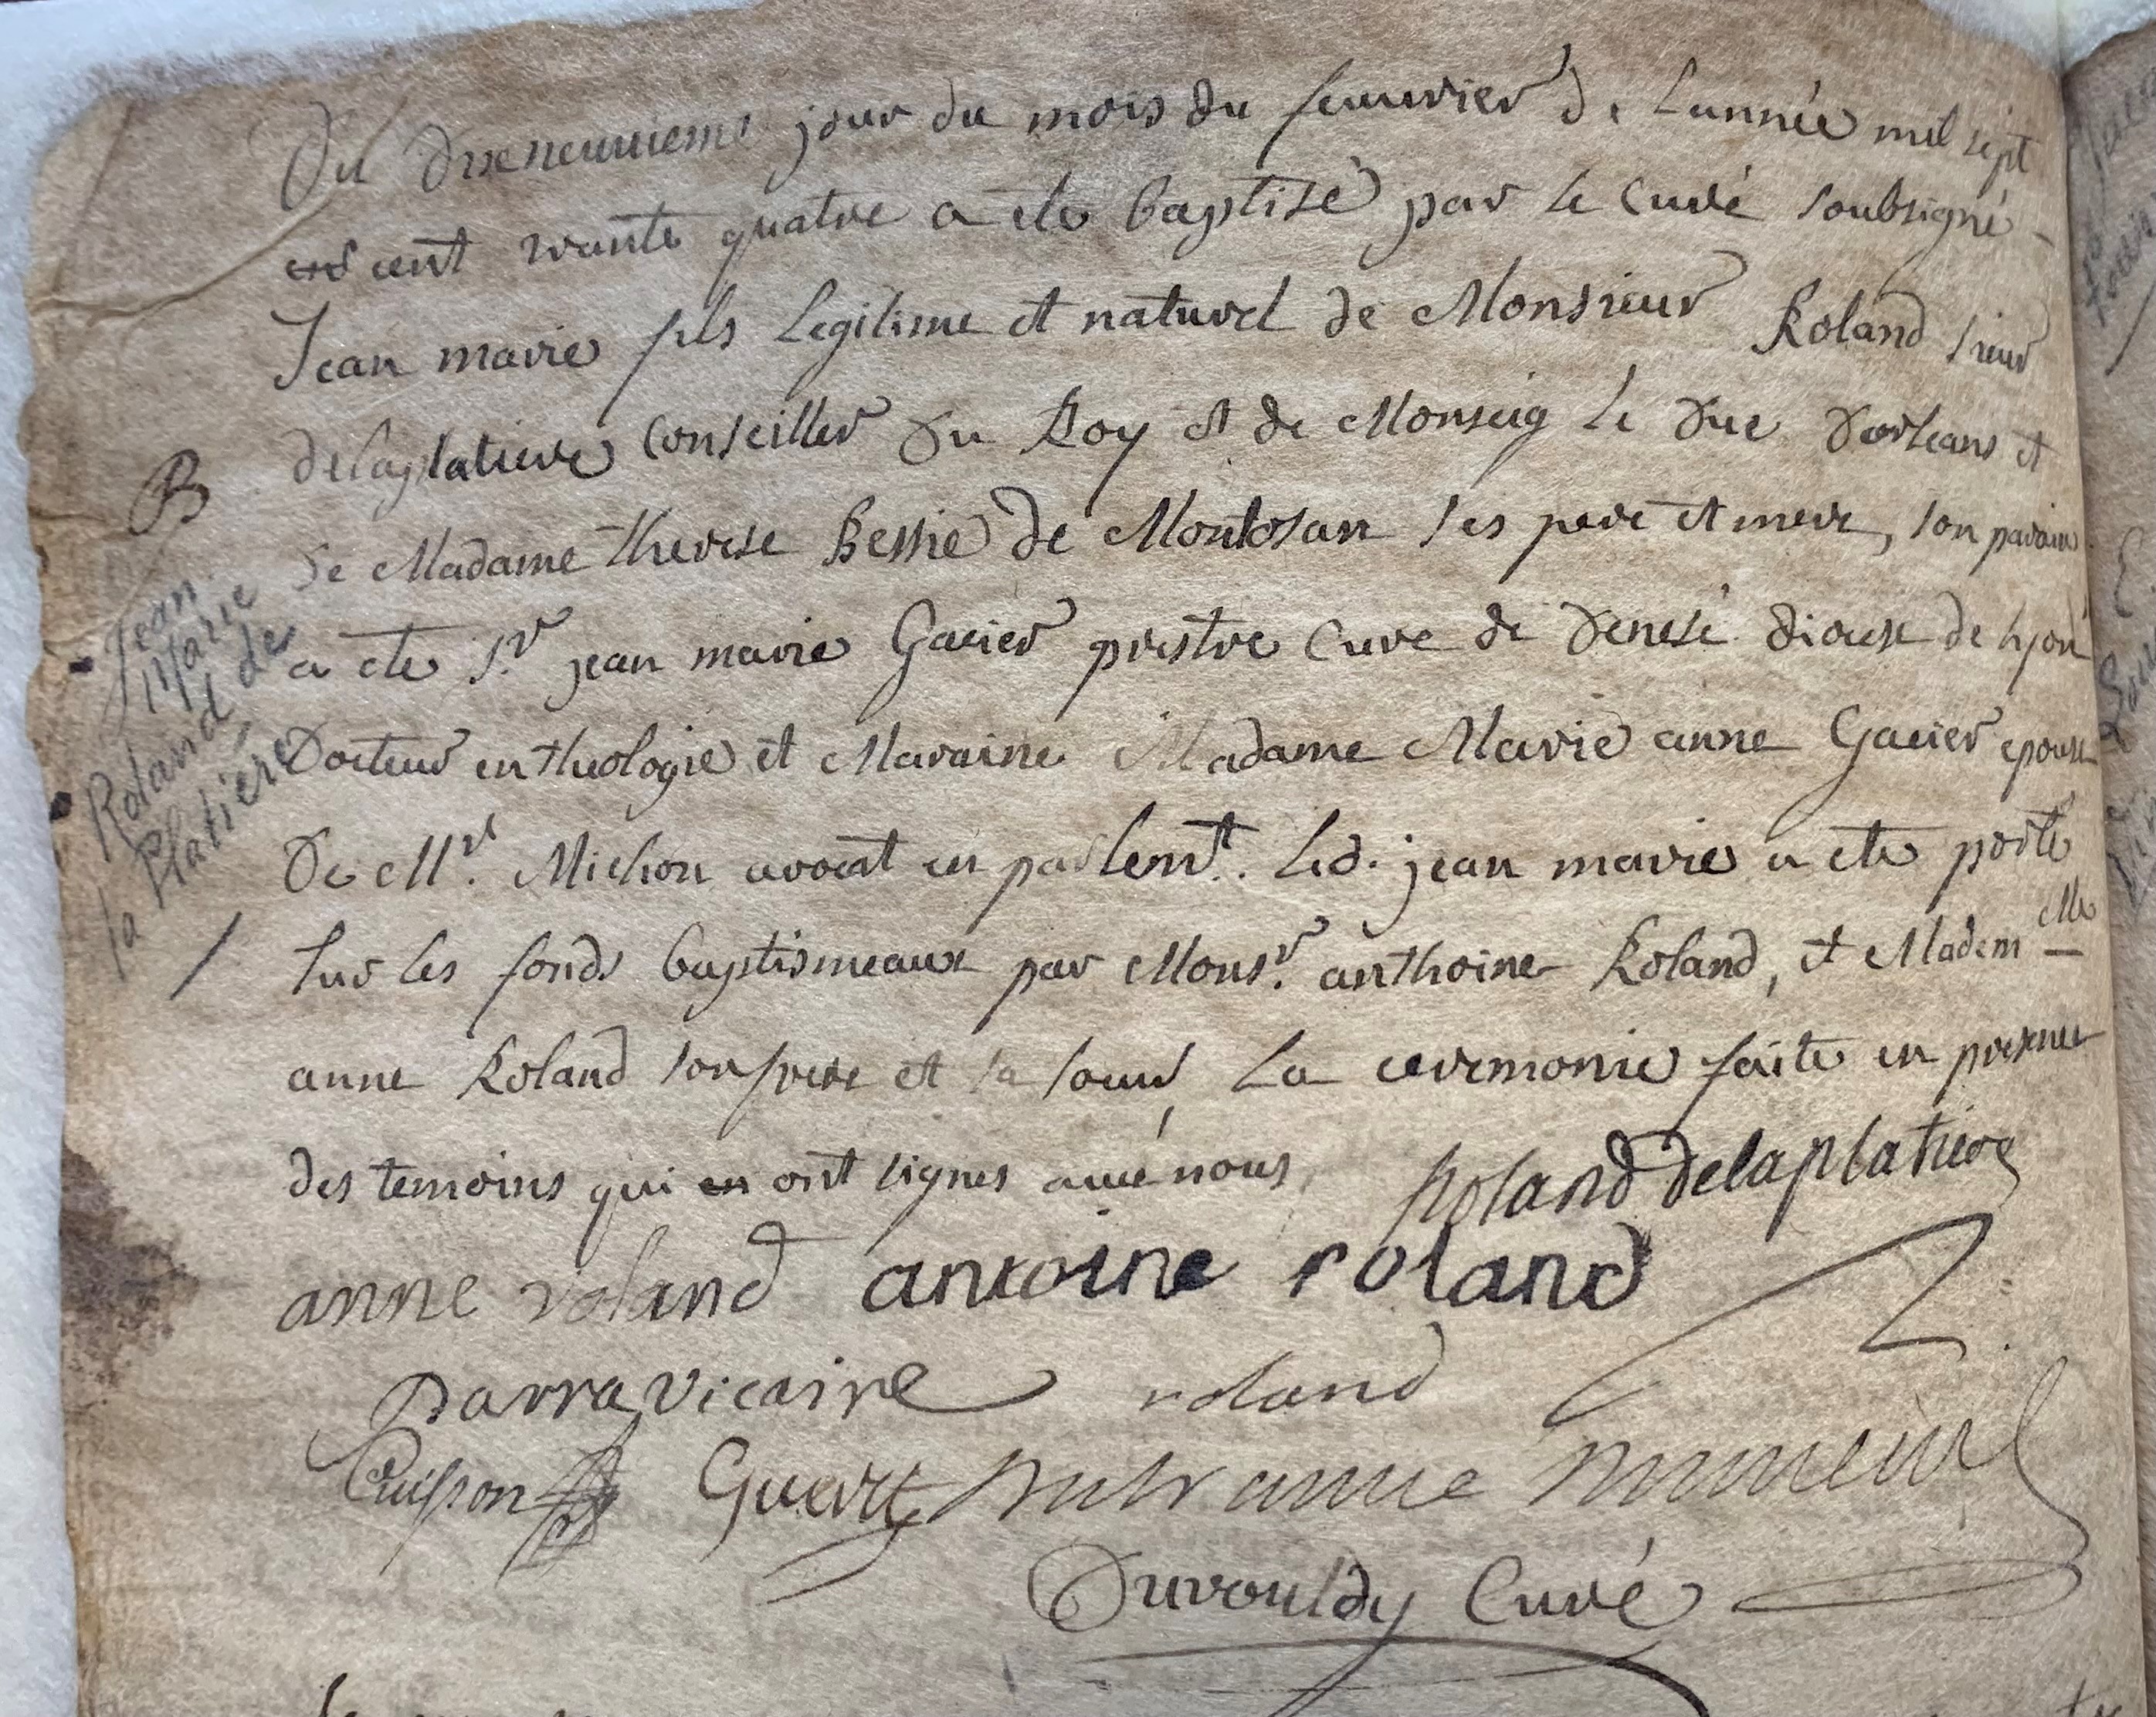 Du dixneuuieme jour du mois du feuurier de Lannée mil sept
cent trante quatre a ete baptisé par le Curé soubsigné
Jean marie fils Legitime et naturel de Monsieur Roland sieur
delaplatiere Conseiller du Roy et de Monseig le Duc dorleans et
B
de Madame therese Bessie de Montosan ses pere et mere, son parain
a ete Sr. jean marie Gacier prestre Cure de Denesé diocese de Lyon
Docteur en theologie et Maraine Madame Marie anne Gacier epouse
De Mr. Michon avocat en parlemt. Led. jean marie a ete porté
Sur les fonds baptismeaux par Monsr. anthoine Roland, et Madem elle
anne Roland son frere et sa soeur, La ceremonie faite en presence
des temoins qui en ont signes auec nous
Jean
Marie
Roland de
la Platière
Roland delaplatiere
anne roland antoine roland
Darra vicaire roland
Cuisson Guerry
Durouldy Curé